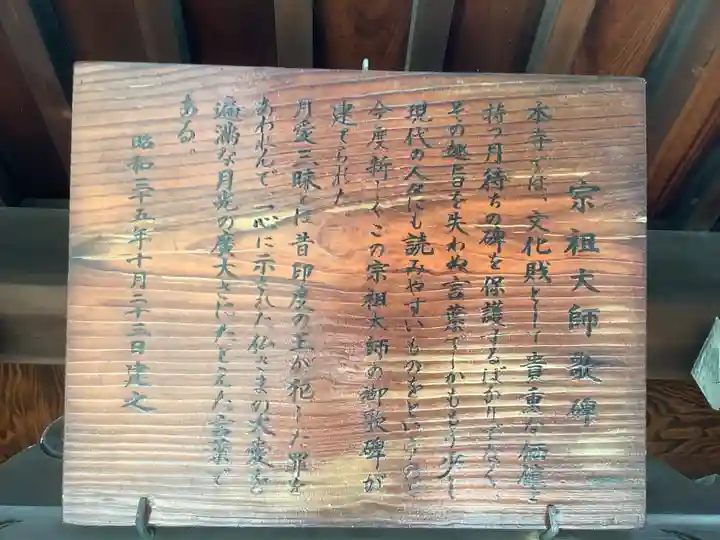 宗祖大師歌碑
本寺では、文化財として貴重な価値を
持つ月待ちの碑を保護するばかりでなく、
その趣旨を失わぬ言葉でしかももう少し
現代の人々にも読みやすいものをというので
今度新しくこの宗祖大師の御歌碑が
建てられた。
月愛三昧とは昔印度の王が犯した罪を
あわれんで、一心に示された仏さまの大愛を
遍満な月光の広大さにたとえた言葉で
ある。
昭和三十五年十月二十三日建之